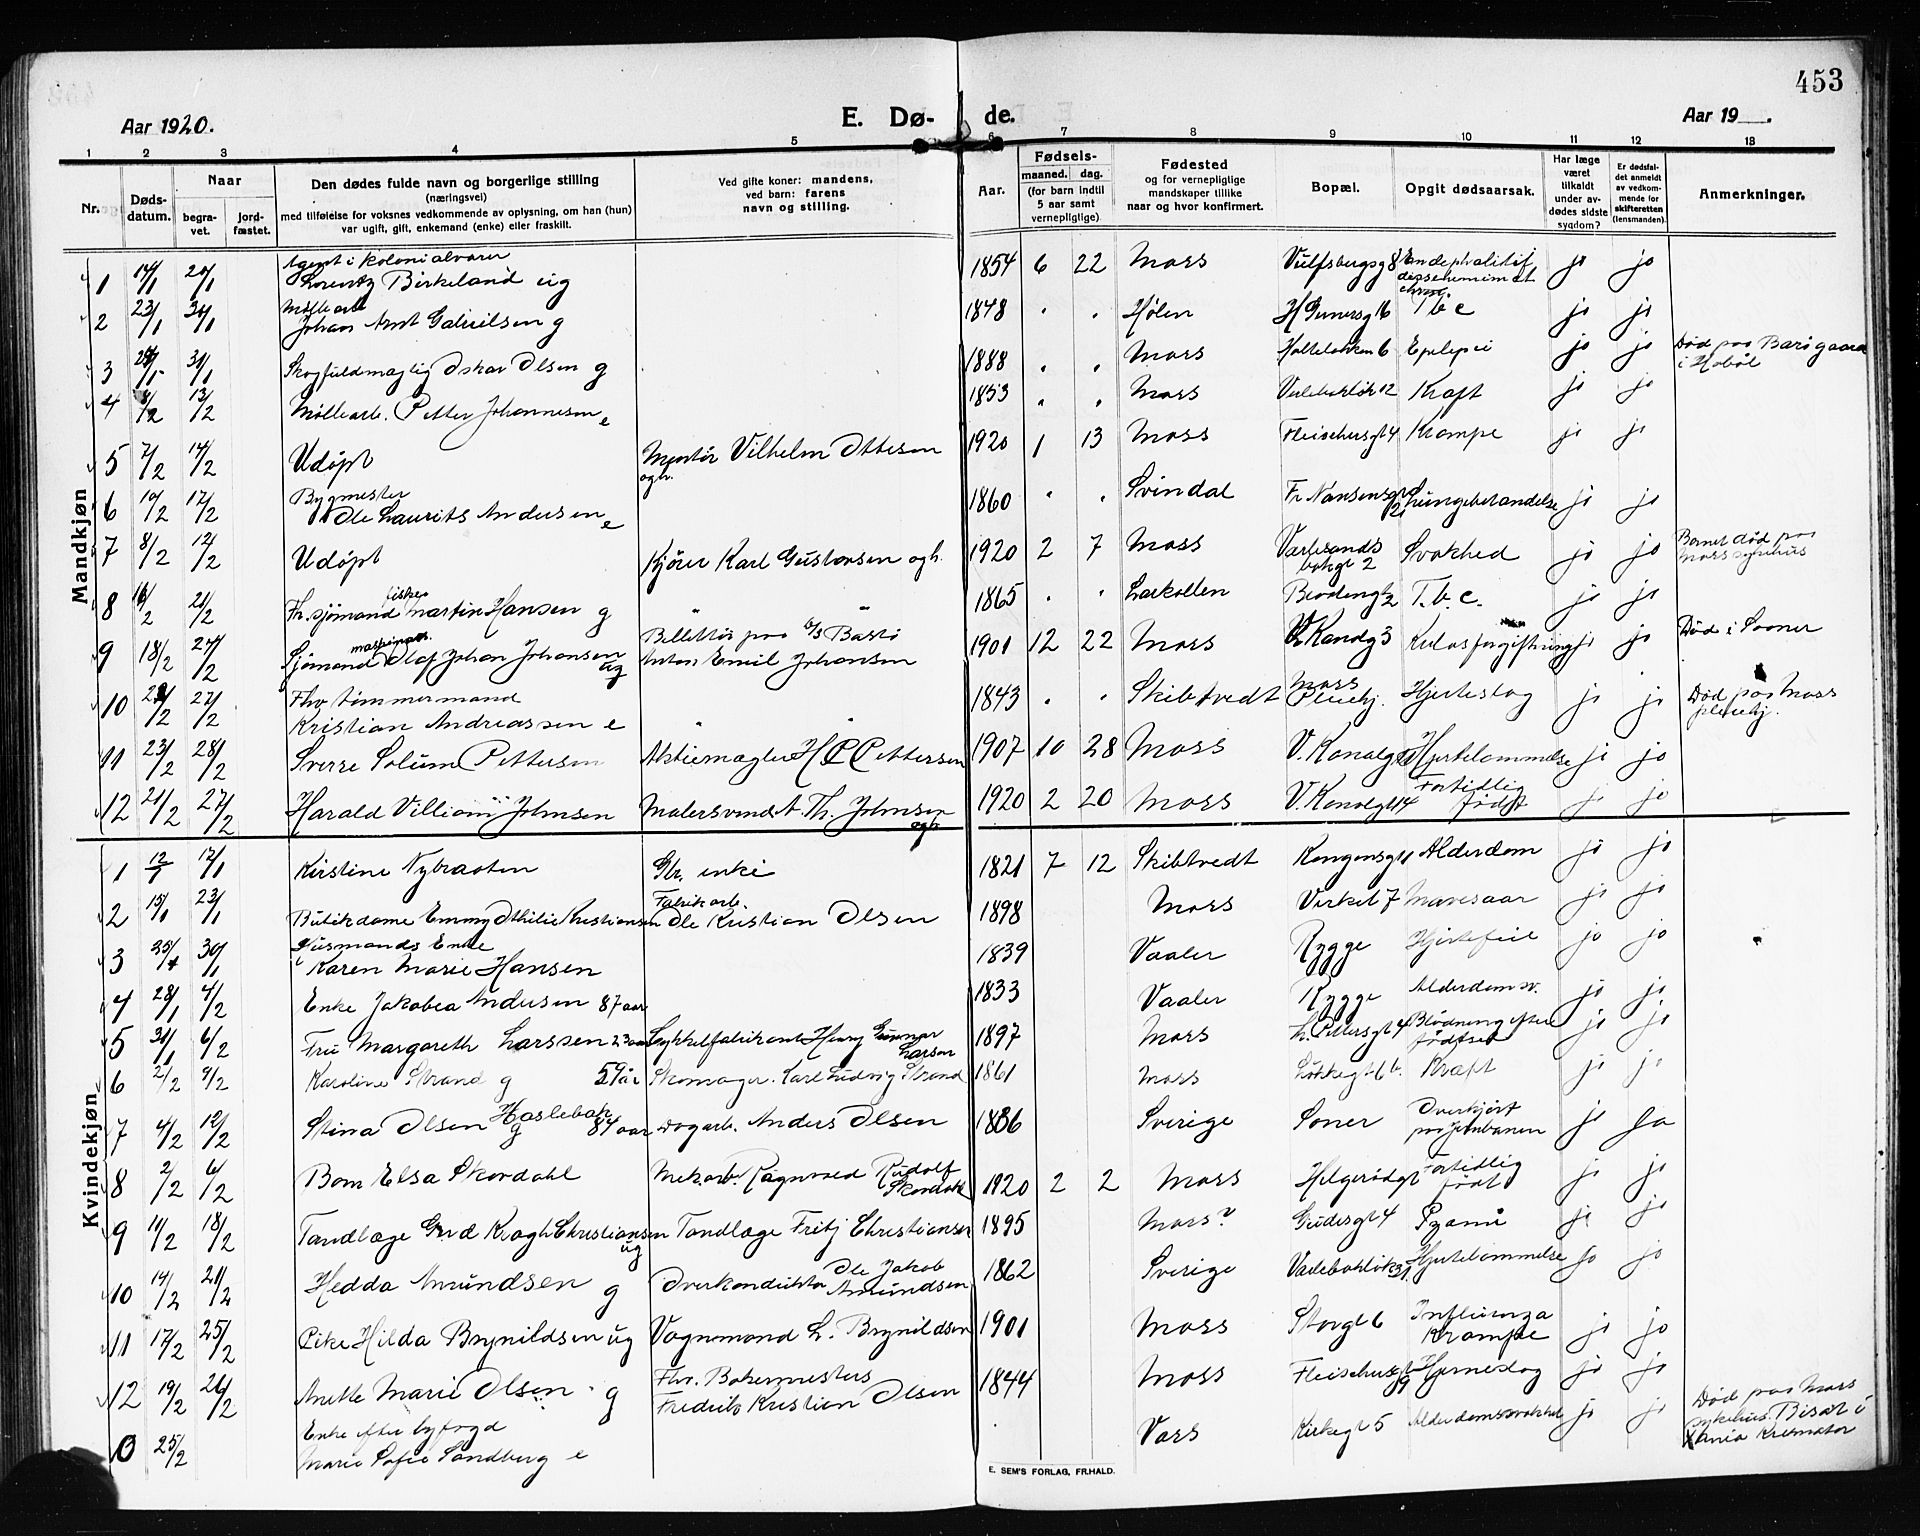 453
Aar 1920.
E. Dø- de.
Aar 19 .
1 2 3 4 5 6 7 8 9 10 11 12 13
Nr. Døds-datum. Naar begra-vet. jord-fæstet. Den dødes fulde navn og borgerlige stilling (næringsvei) med tilføielse for voksnes vedkommende av oplysning, om han (hun) var ugift, gift, enkemand (enke) eller fraskilt. Ved gifte koner: mandens, ved barn: farens navn og stilling. Aar. Fødsels- maaned. dag. (for barn indtil 5 aar samt vernepligtige). Fødested og for vernepligtige mandskaper tillike naar og hvor konfirmert. Bopæl. Opgit dødsaarsak. Har læge været tilkaldt under av-dødes sidste sygdom? Er dødsfal-det anmeldt av vedkom-mende for skifteretten (lensmanden). Anmerkninger.
Mandkjøn
1 14/1 20/1 Agent i kolonialvarer Lorentz Birkeland ug 1854 6 22 Moss Vulfsbergsg 8 jo jo
2 23/1 30/1 Møllearb Johan Arnt Gabrielsen g 1848 " " Hølen Tbc jo jo
3 31/1 Skogfuldmægtig Oskar Olsen g 1888 " " Moss 6 Epilepsi jo jo Død paa gaard i Hobøl
4 13/2 Møllearb. Petter Johannesen e 1853 " " Moss 12 Kræft jo jo
5 7/2 14/2 Udøpt Montør Vilhelm Ottesen ogh. 1920 1 13 Moss Fleischersgt 4 Krampe jo jo
6 10/2 17/2 Bygmester Ole Laurits Andersen e 1860 " " Svindal Fr. Nansensgt jo jo
7 8/2 12/2 Udøpt Kjører Karl Gustavsen ogh. 1920 2 7 Moss 2 Svakhed jo jo Barnet død paa Moss sykehus
8 16/2 21/2 Fh. sjømand fisker Martin Hansen g " " 1865 " " Larkollen 2 T.b.c. jo jo
9 18/2 24/2 Sjømand Olaf Johan Johansen ug Billettør paa D/S Bastø Anton Emil Johansen 1901 12 22 Moss V. Kanalg 3 Kulosforgiftning jo jo Død i Sooner
10 27/2 Fhv tømmermand Kristian Andreassen e " " 1843 " " Skibtvedt Moss Pleiehj. Hjerteslag jo jo Død paa Moss pleiehj.
11 23/2 28/2 Sverre Solum Pettersen Aktiemægler H P C Pettersen 1907 10 28 Moss V. Kanalgt Hjertelammelse jo jo
12 21/2 27/2 Harald Villiam Johnsen Malersvend A. Th. Johnsen ogh 1920 2 20 Moss V. Kanalgt 14 Fortidlig født jo jo
Kvindekjøn
1 12/1 17/1 Kirstine Nybraaten Gbr. enke 1821 7 12 Skibtvedt Kongensgt Alderdom jo jo
2 15/1 23/1 Butikdame Emmy Othilie Kristiansen Fabrikarb. Ole Kristian Olsen 1898 Moss Verket 7 Mavesaar jo jo
3 30/1 Husmands Enke Karen Marie Hansen 1839 Vaaler Rygge Hjertefeil jo jo
4 28/1 4/2 Enke Jakobea Andersen 87 aar 1833 Vaaler Rygge Alderdomsv. jo jo
5 31/1 6/2 Fru Margareth Larssen 23 aar Sykkelfabrikant Henry Gunnar Larsen 1897 Moss Th. Petersgt 4 Blødning efter fødsel jo jo
6 2/2 9/2 Karoline Strand g 59 år Skomager. Karl Ludvig Strand 1861 Moss Kræft jo jo
7 4/2 12/2 Stina Olsen Haslebak g 84 aar Dagarb. Anders Olsen 1836 Sverige Soner Overkjørt paa jernbanen jo Ja
8 2/2 6/2 Barn Elsa Skovdahl Mekarb. Ragnvald Rudolf Skovdahl 1920 2 2 Moss Helgerødgt Fortidlig født jo jo
9 11/2 18/2 Tandlæge Gerd Kragh Christiansen ug Tandlæge Fritj Christiansen 1895 Moss? Gudesgt 4 jo jo
10 14/2 21/2 Hedda Amundsen g Overkonduktør Ole Jakob Amundsen 1862 Sverige 31 Hjertelammelse Jo jo
11 17/2 25/2 Pike Hilda Brynildsen ug Vognmand L. Brynildsen 1901 Moss Storgt 6 Influenza Krampe jo jo
12 19/2 26/2 Anette Marie Olsen g Fhv. Bakermesters Fredrik Kristian Olsen 1844 Moss Fleischersgt 9 Hjerneslag jo jo
13 25/2 Enke efter byfogd Marie Sofie Sandberg e Vars Kirkegt 5 Alderdomssvakhet jo jo Død paa Moss sykehus. Bisat i Kr.ania Kremator
E. SEM'S FORLAG, FR.HALD.